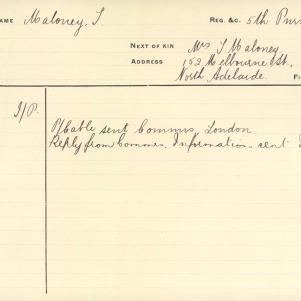 NAME Maloney, T. REG. &C. 5th
NEXT OF KIN Mrs T Maloney
ADDRESS 152 Melbourne St.,
North Adelaide.
I/P.
P/Cable sent Commrs. London
Reply from Commrs. Information sent